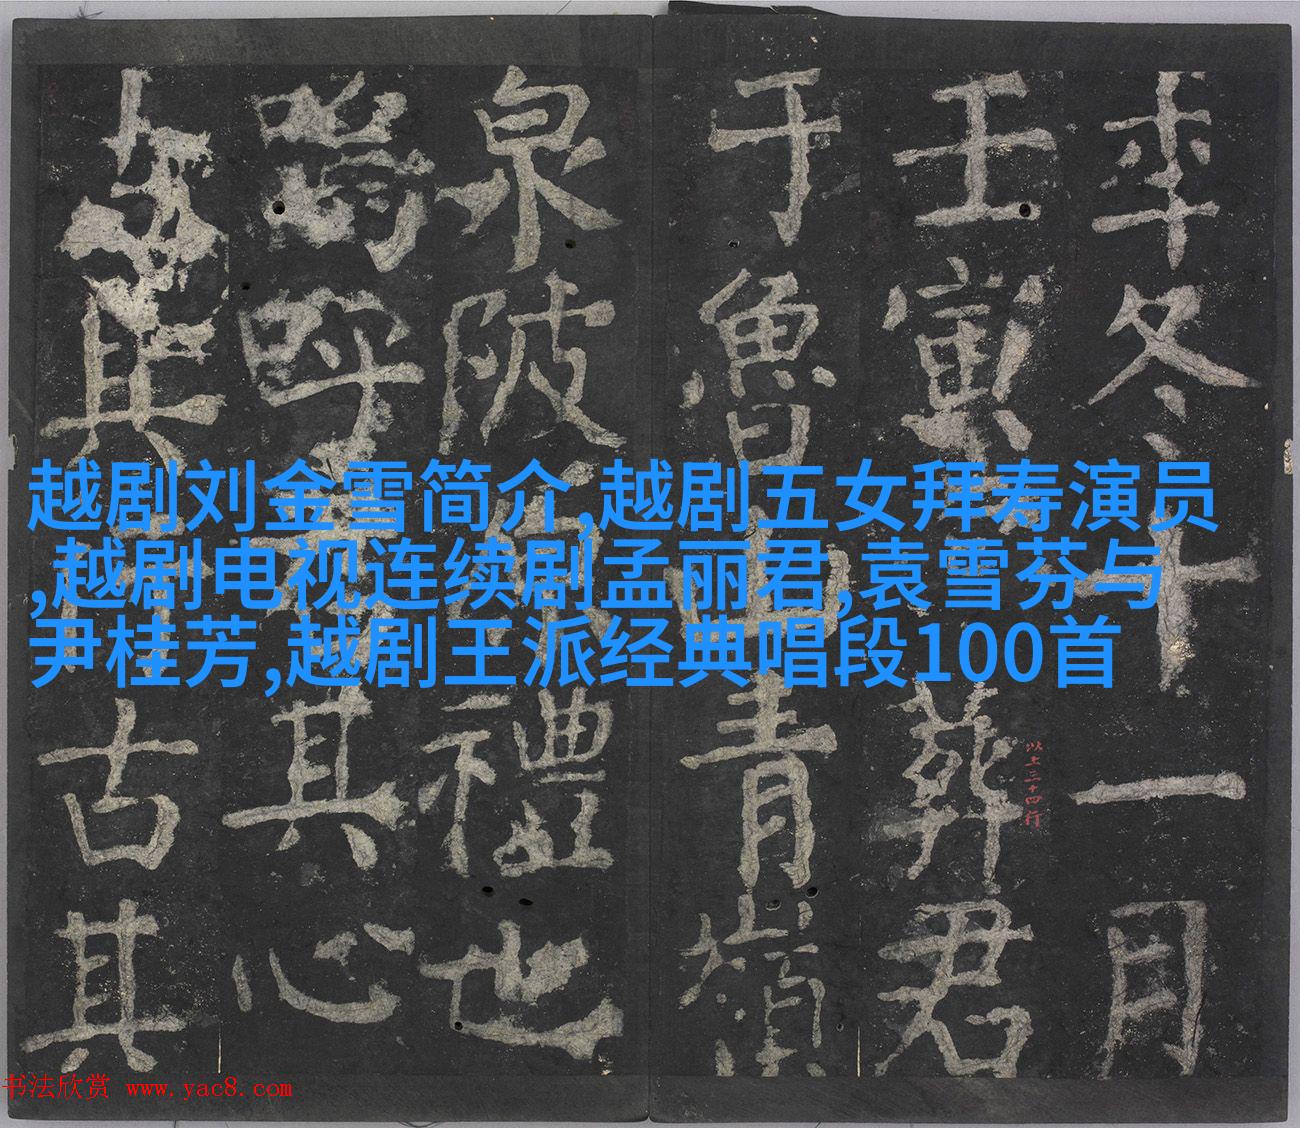 越剧刘金雪简介,越剧五女拜寿演员
,越剧电视连续剧孟丽君,袁雪芬与
尹桂芳,越剧王派经典唱段100首
年冬十一月
壬寅葬君
以上三十四行
于魯山青嶺
泉陂禮也
嗚呼其心
其古其
书法欣赏 www.yac8.com